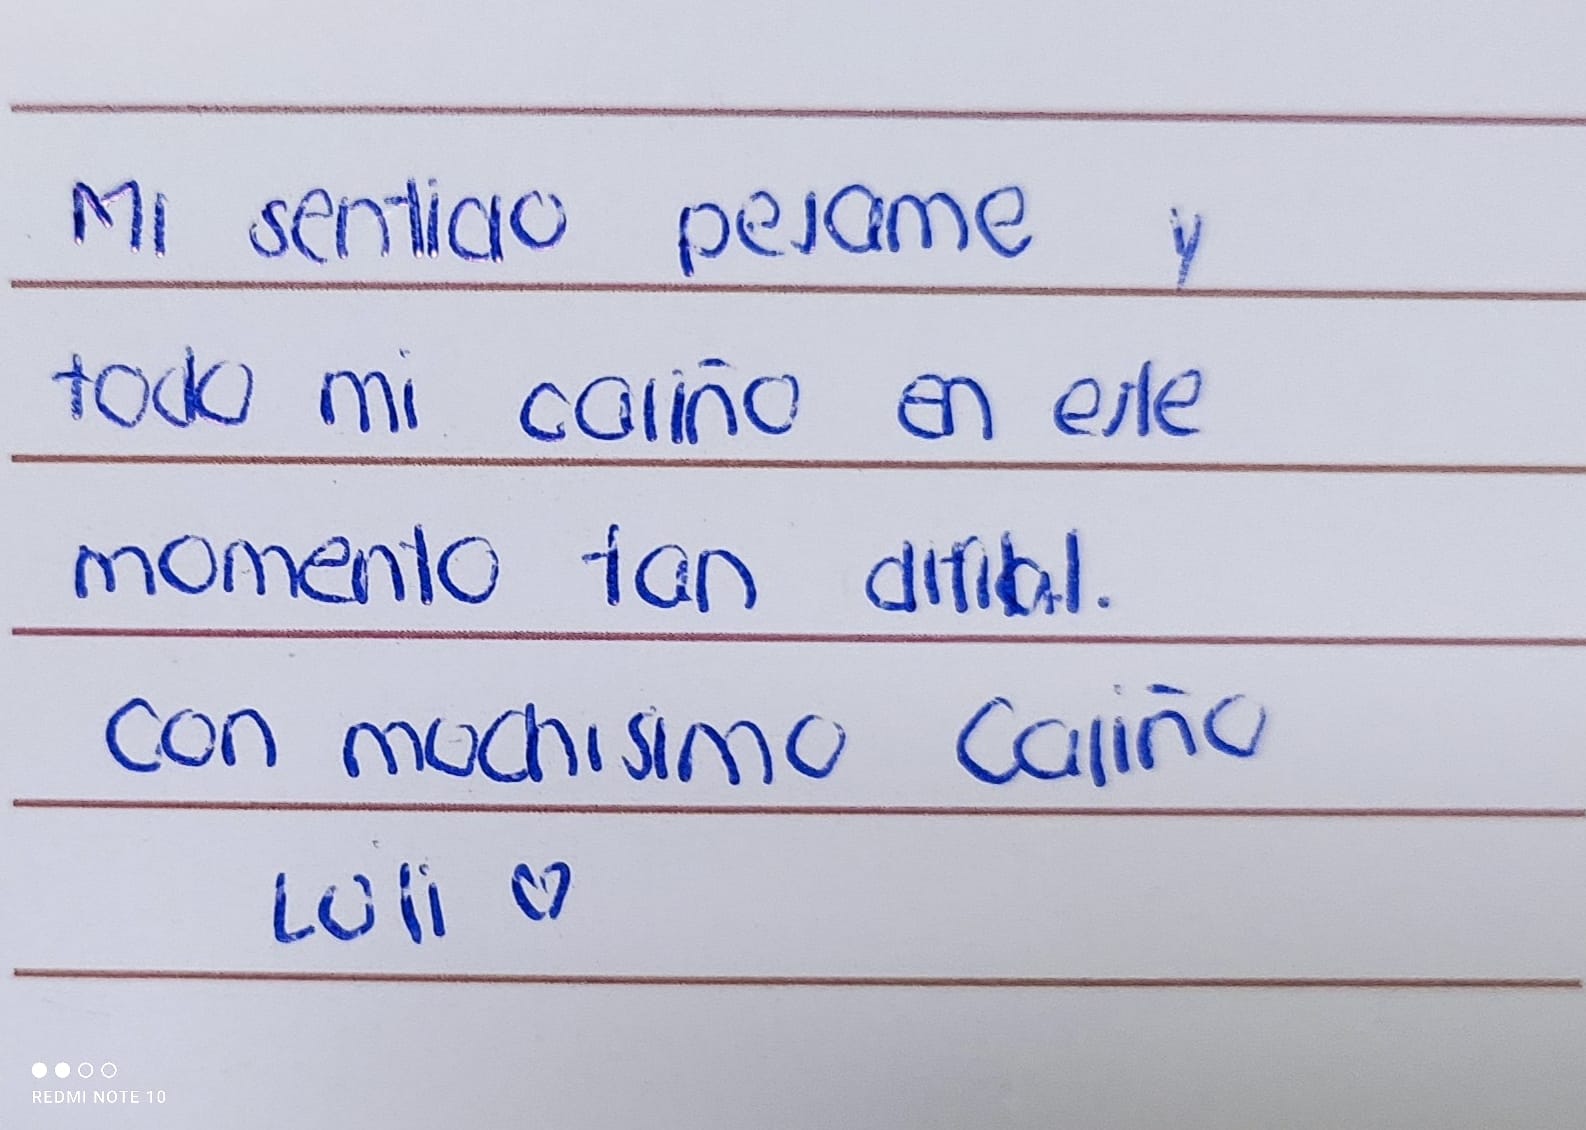 Mi sentido pesame y
todo mi cariño en este
momento tan dificil.
Con muchisimo cariño
Loli ♡
REDMI NOTE 10